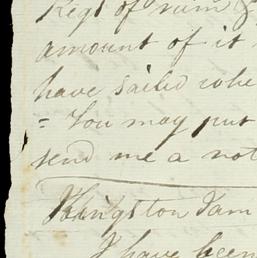 Kegs of rum &
amount of it
have sailed whe
= You may put
send me a not
Kingston Jam
I have been